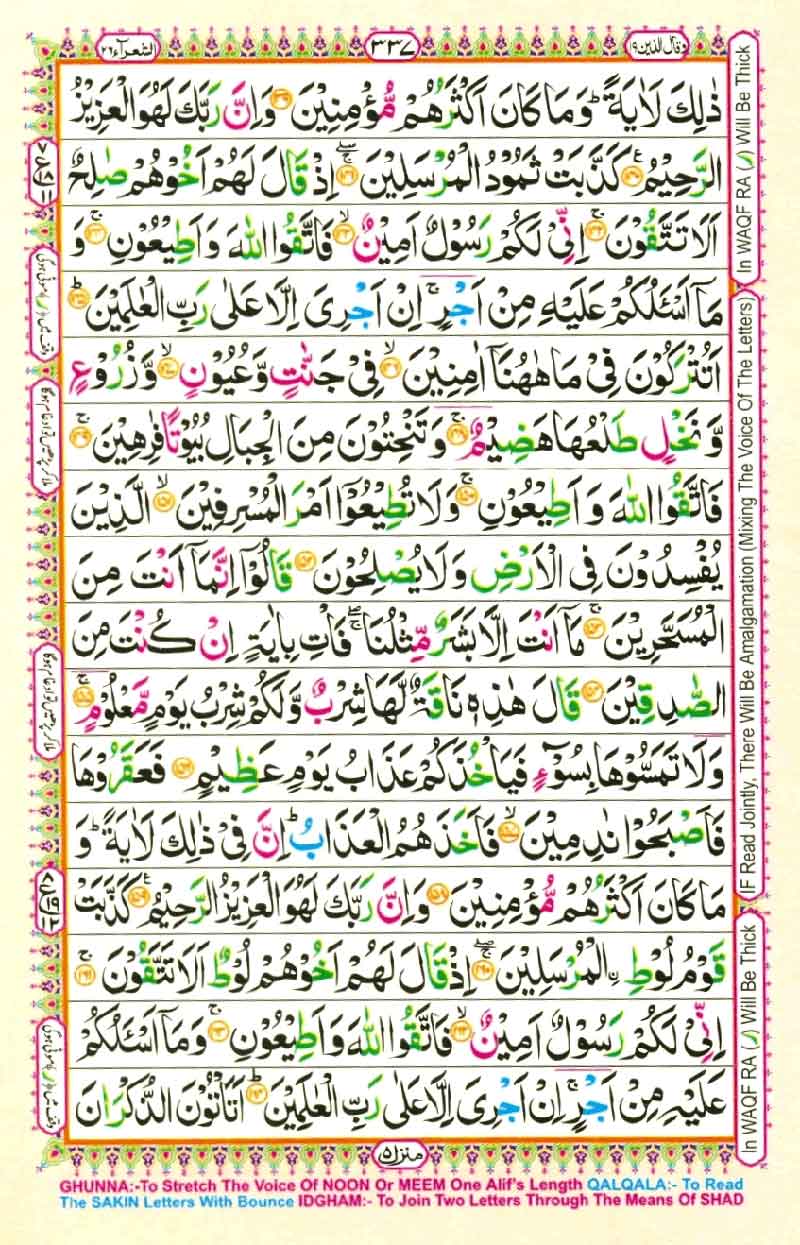 الشعرآء ٢٦
٣٣٧
وقال الذين ١٩
ذٰلِكَ لَاٰيَةً ؕ وَمَا كَانَ اَكْثَرُهُمْ مُّؤْمِنِيْنَ ۞ وَاِنَّ رَبَّكَ لَهُوَ الْعَزِيْزُ
الرَّحِيْمُ ۞ كَذَّبَتْ ثَمُوْدُ الْمُرْسَلِيْنَ ۞ اِذْ قَالَ لَهُمْ اَخُوْهُمْ صٰلِحٌ
اَلَا تَتَّقُوْنَ ۞ اِنِّيْ لَكُمْ رَسُوْلٌ اَمِيْنٌ ۞ فَاتَّقُوا اللّٰهَ وَاَطِيْعُوْنِ ۞ وَ
مَاۤ اَسْـَٔلُكُمْ عَلَيْهِ مِنْ اَجْرٍ ۚ اِنْ اَجْرِيَ اِلَّا عَلٰى رَبِّ الْعٰلَمِيْنَ ۞
اَتُتْرَكُوْنَ فِيْ مَا هٰهُنَاۤ اٰمِنِيْنَ ۞ فِيْ جَنّٰتٍ وَّعُيُوْنٍ ۞ وَّزُرُوْعٍ
وَّنَخْلٍ طَلْعُهَا هَضِيْمٌ ۞ وَتَنْحِتُوْنَ مِنَ الْجِبَالِ بُيُوْتًا فٰرِهِيْنَ ۞
فَاتَّقُوا اللّٰهَ وَاَطِيْعُوْنِ ۞ وَلَا تُطِيْعُوْۤا اَمْرَ الْمُسْرِفِيْنَ ۞ الَّذِيْنَ
يُفْسِدُوْنَ فِي الْاَرْضِ وَلَا يُصْلِحُوْنَ ۞ قَالُوْۤا اِنَّمَاۤ اَنْتَ مِنَ
الْمُسَحَّرِيْنَ ۞ مَاۤ اَنْتَ اِلَّا بَشَرٌ مِّثْلُنَا ۖ فَاْتِ بِاٰيَةٍ اِنْ كُنْتَ مِنَ
الصّٰدِقِيْنَ ۞ قَالَ هٰذِهٖ نَاقَةٌ لَّهَا شِرْبٌ وَّلَكُمْ شِرْبُ يَوْمٍ مَّعْلُوْمٍ ۞
وَلَا تَمَسُّوْهَا بِسُوْٓءٍ فَيَاْخُذَكُمْ عَذَابُ يَوْمٍ عَظِيْمٍ ۞ فَعَقَرُوْهَا
فَاَصْبَحُوْا نٰدِمِيْنَ ۞ فَاَخَذَهُمُ الْعَذَابُ ؕ اِنَّ فِيْ ذٰلِكَ لَاٰيَةً ؕ وَ
مَا كَانَ اَكْثَرُهُمْ مُّؤْمِنِيْنَ ۞ وَاِنَّ رَبَّكَ لَهُوَ الْعَزِيْزُ الرَّحِيْمُ ۞ كَذَّبَتْ
قَوْمُ لُوْطِ ࣙالْمُرْسَلِيْنَ ۞ اِذْ قَالَ لَهُمْ اَخُوْهُمْ لُوْطٌ اَلَا تَتَّقُوْنَ ۞
اِنِّيْ لَكُمْ رَسُوْلٌ اَمِيْنٌ ۞ فَاتَّقُوا اللّٰهَ وَاَطِيْعُوْنِ ۞ وَمَاۤ اَسْـَٔلُكُمْ
عَلَيْهِ مِنْ اَجْرٍ ۚ اِنْ اَجْرِيَ اِلَّا عَلٰى رَبِّ الْعٰلَمِيْنَ ۞ اَتَاْتُوْنَ الذُّكْرَانَ
منزل ٥
In WAQF RA (ر) Will Be Thick
IF Read Jointly, There Will Be Amalgamation (Mixing The Voice Of The Letters)
In WAQF RA (ر) Will Be Thick
GHUNNA:-To Stretch The Voice Of NOON Or MEEM One Alif's Length QALQALA:- To Read
The SAKIN Letters With Bounce IDGHAM:- To Join Two Letters Through The Means Of SHAD